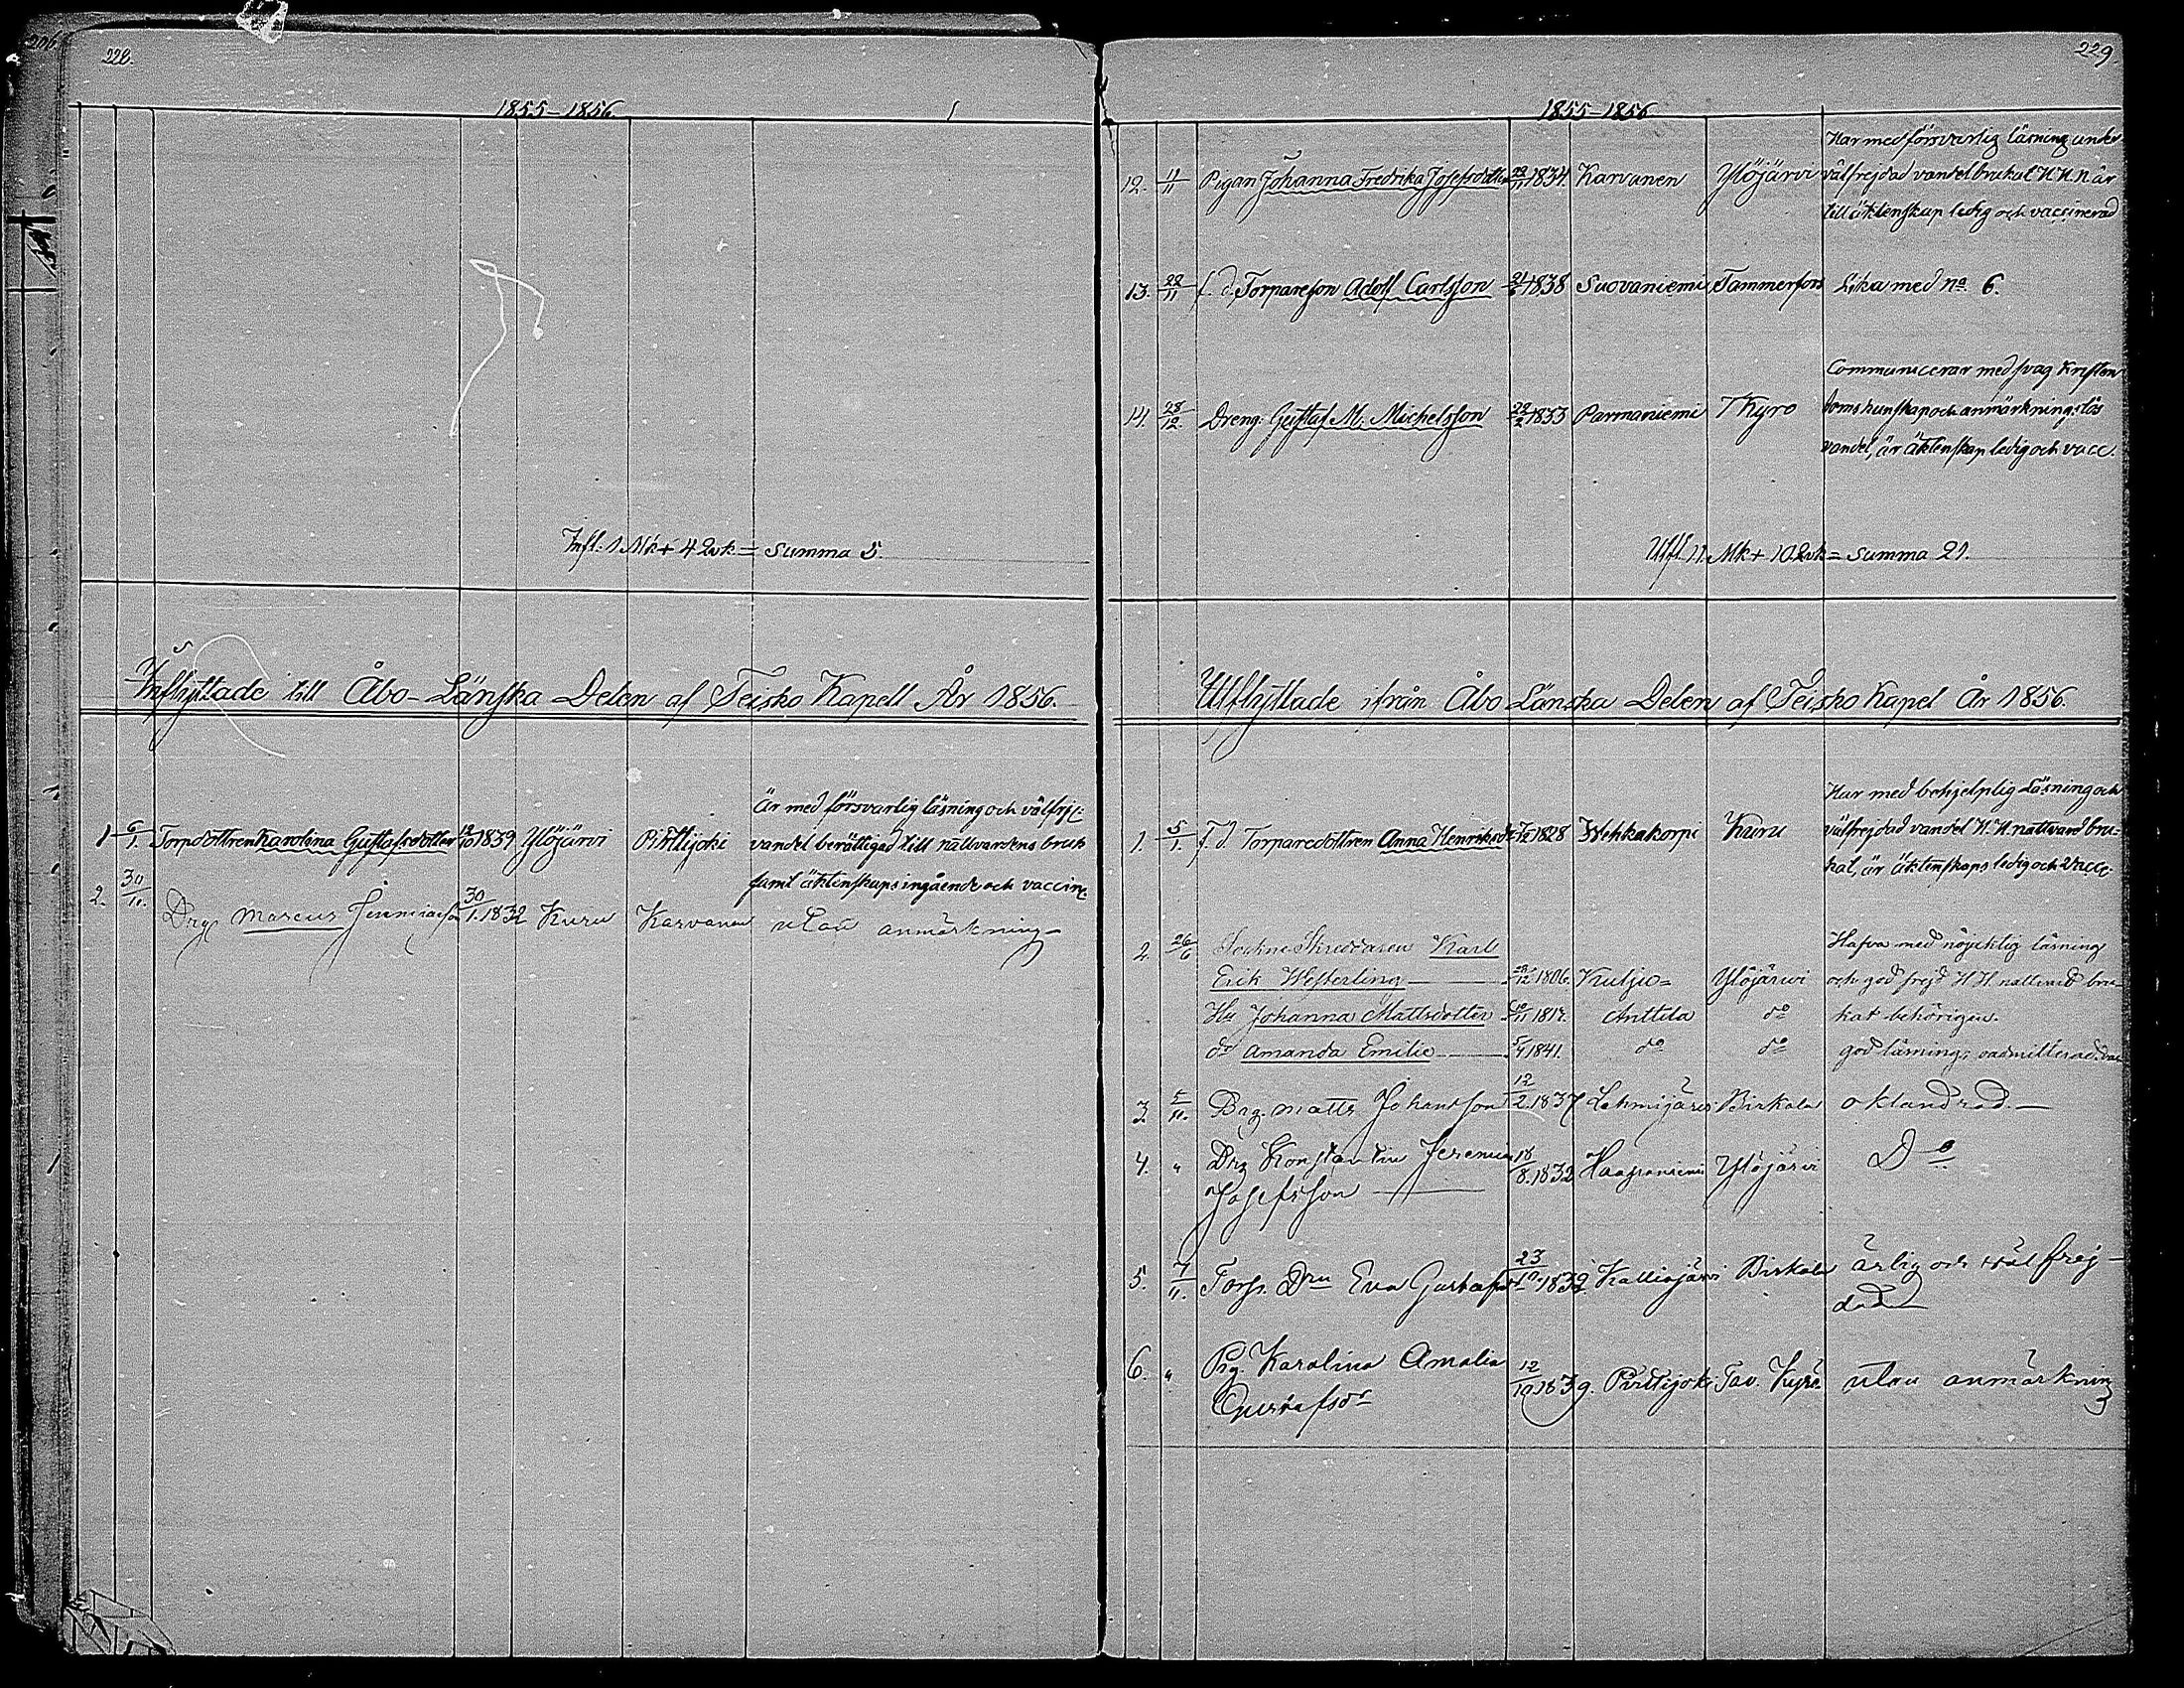 228.
1855–1856
Infl: 1 Mk + 4 Qvk = Summa 5.
Inflyttade till Åbo-Länska Delen af Teisko Kapell År 1856.
1 6/1. Torpdottren Karolina Gustafsdotter 12/10 1839 Ylöjärvi Pirttijoki
Är med försvarlig läsning och välfrejd:
vandel berättigad till nattvardens bruk
samt äktenskaps ingående och vaccin:
2. 30/11. Drg Marcus 30/1. 1832 Kuru Karvanen utan anmärkning
229.
1855–1856
Har med försvarlig läsning under
12. 11/11 Pigan Johanna Fredrika Josefsdotter 1834. Karvanen Ylöjärvi välfrejdad vandel brukat H.H.N. är
till äktenskap ledig och vaccinerad
13. 22/11 f. d. Torpareson Adolf Carlsson 1838 Suovaniemi Tammerfors Lika med No 6.
Communicerar med svag kristen
14. 28/12. Dreng: Gustaf M. Michelsson 22/2 1833 Parmaniemi T Kyro doms kunskap och anmärkningslös
vandel, är äktenskap ledig och vacc.
Utfl. 11. Mk + 10 Qvk = Summa 21.
Utflyttade ifrån Åbo Länska Delen af Teisko Kapel År 1856.
Har med behjelplig Läsning och
1. 5/1. f. d. Torparedottren Anna Henriksdr 1828 Kuru välfrejdad vandel H. H. nattvard bru-
kat, är äktenskaps ledig och Vacc.
2. 26/6 Sockne Skreddaren Karl Hafva med nöjaktig läsning
Erik Westerling 1806. Kuljo= Ylöjärwi och god frejd H H. nattvard bru-
Hu Johanna Mattsdotter 1817. Anttila do kat behörigen.
dr Amanda Emilie 5/4 1841. do do god läsning; oadmitterad. vac
3. 5/11. Drg. Matts Johansson 12/2. 1837 Lehmijärvi Birkala oklandrad.
4. " Drg Konstantin Jeremias 18/8. 1832 Haapaniemi Ylöjärvi Do
Josefsson
5. 7/11. Torp. Drn Eva Gustafsdr 23/10. 1839 Kalliojärvi Birkala ärlig och väl frej-
dad
6. " Pig. Karolina Amalia 12/10 1839. Pirttijoki Tav. Kyro. utan anmärkning
Gustafsdr